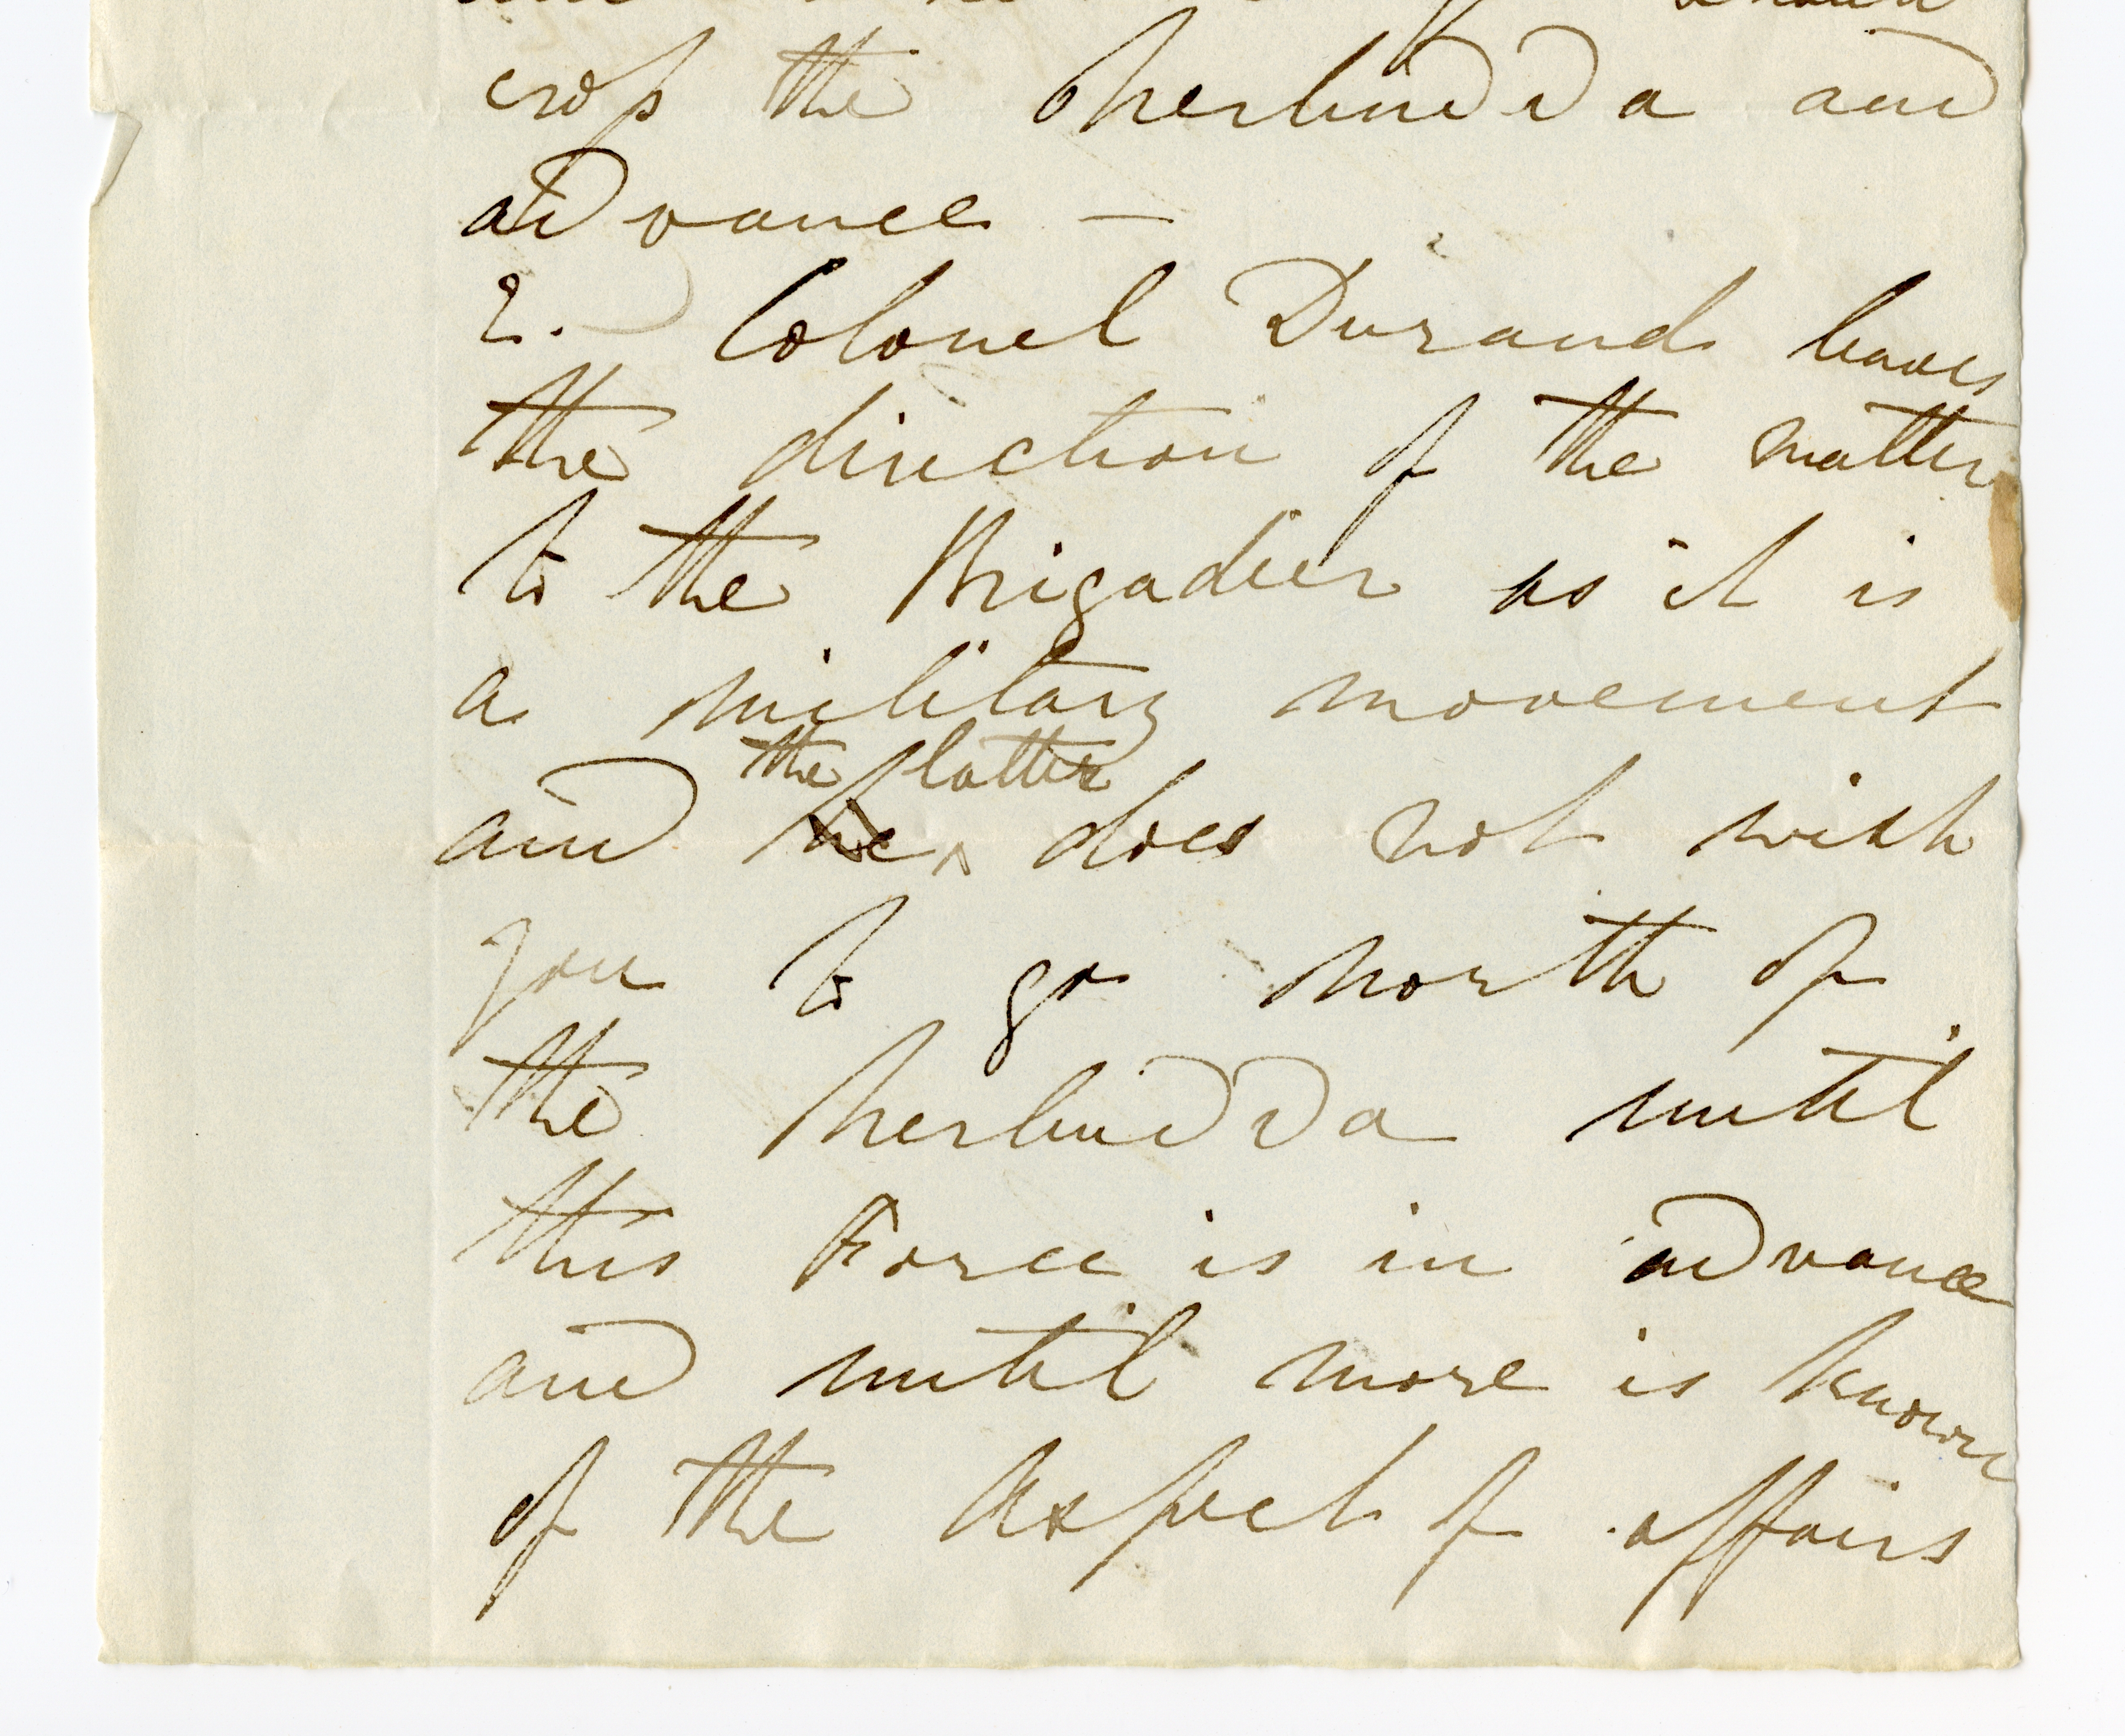 should
cross the Nerbudda and
advance —
2. Colonel Durand leaves
the direction of the matter
to the Brigadier as it is
a military movement
the latter
and he does not wish
you to go north of
the Nerbudda until
this Force is in advance
and until more is known
of the Aspect of affairs